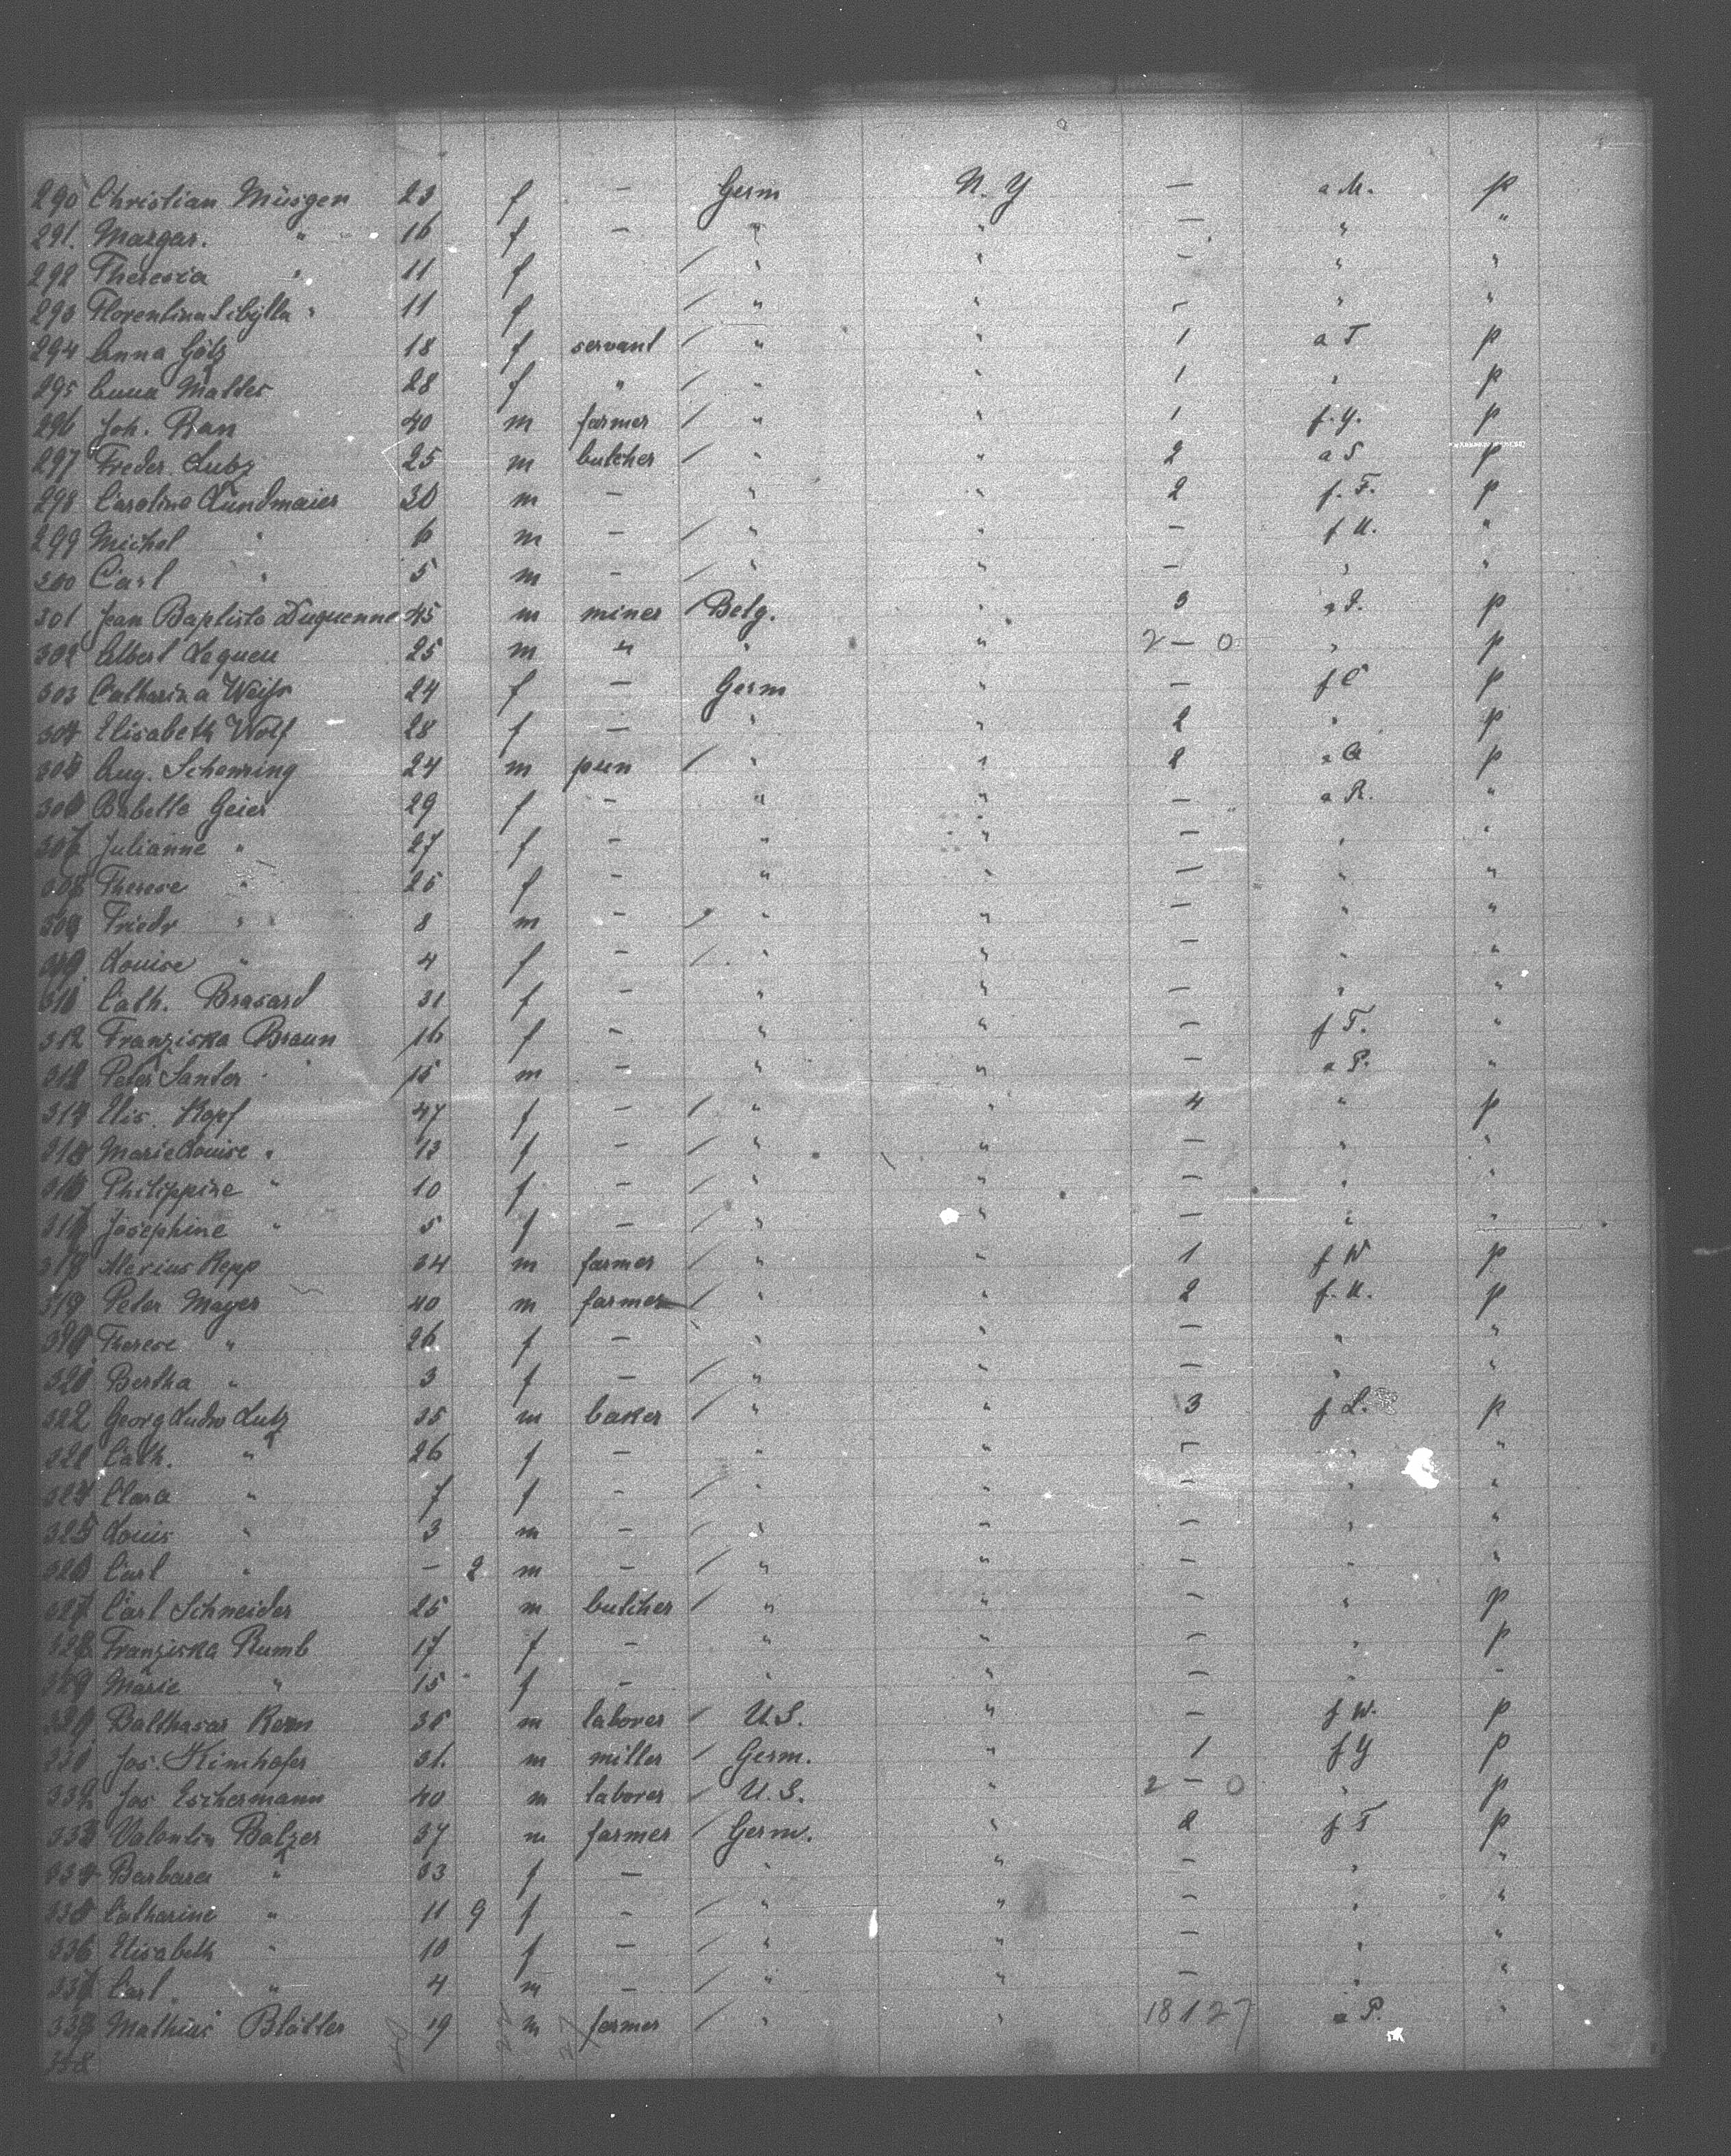 290 Christian Müsgen 23 f — Germ N. Y — a M. p
291. Margar. " 16 f — " " — " "
292 Theresia " 11 f / " " — " "
293 Florentina Sibylla " 11 f / " " — " "
294 Anna Götz 18 f servant / " " 1 a T p
295 Anna Matter 28 f " / " " 1 " p
296 Joh. Rau 40 m farmer / " " 1 f. Y. p
297 Freder. Lutz 25 m butcher / " " 2 a S p
298 Caroline Lundmaier 30 m — " " 2 f. F. p
299 Michel " 6 m — / " " — f U. "
300 Carl " 5 m — / " " — " "
301 Jean Baptiste Duquenne 45 m miner / Belg. " 3 p
302 Albert Lequeu 25 m " " " 2 — 0 " p
303 Catharina Weiss 24 f — Germ " — f C p
304 Elisabeth Wolf 28 f — " " 2 " p
305 Aug. 24 m / " " 2 p
306 Babette Geier 29 f — " " — a R. "
307 Julianne " 27 f — " " — " "
308 Therese " 25 f — " " — " "
309 Friedr " 8 m — / " " — " "
Louise " 4 f — / " " — " "
Cath. Brasard 31 f — " " — " "
312 Franziska Braun 16 f — " " — f T. "
Peter Santer 15 m — " " — a P. "
314 Elis. Kopf 47 f — / " " 4 " p
315 Marie Louise " 13 f — / " " — " "
316 Philippine " 10 f — / " " — " "
317 Josephine " 5 f — / " " — " "
318 Alexius Kepp 34 m farmer / " " 1 f W p
319 Peter Mayer 40 m farmer / " " 2 f. U. p
Therese " 26 f — " " — " "
Bertha " 3 f — / " " — " "
322 Georg Ludw Lutz 35 m baker / " " 3 f L. p
Cath. " 26 f — " " — " "
324 Clara " 7 f — / " " — " "
325 Louis " 3 m — / " " — " "
326 Carl " — 2 m — / " " — " "
327 Carl Schneider 25 m butcher / " " — " p
328 Franziska Rumb 17 f — " " — " p
329 Marie " 15 f — " " — " "
Balthasar Kern m laborer / U.S. " — f W. p
Jos. Kimhofer 31. m miller / Germ. " 1 f Y p
332 Jos Eschermann 40 m laborer / U.S. " 2 — 0 " p
333 Valentin Balzer 37 m farmer / Germ. " 2 f T p
334 Barbara " 33 f — " " — " "
335 Catharine " 11 9 f — / " " — " "
336 Elisabeth " 10 f — / " " — " "
337 Carl. " 4 m — / " " — " "
338 Mathias Blätter 19 m farmer / " " 18127 a P. "
338